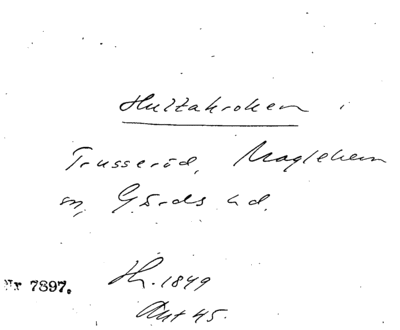 Hultakroken i
Trusseröd, Maglehem
sn, Gärds hd.
Nr 7897. Hr. 1849
Ant 45.